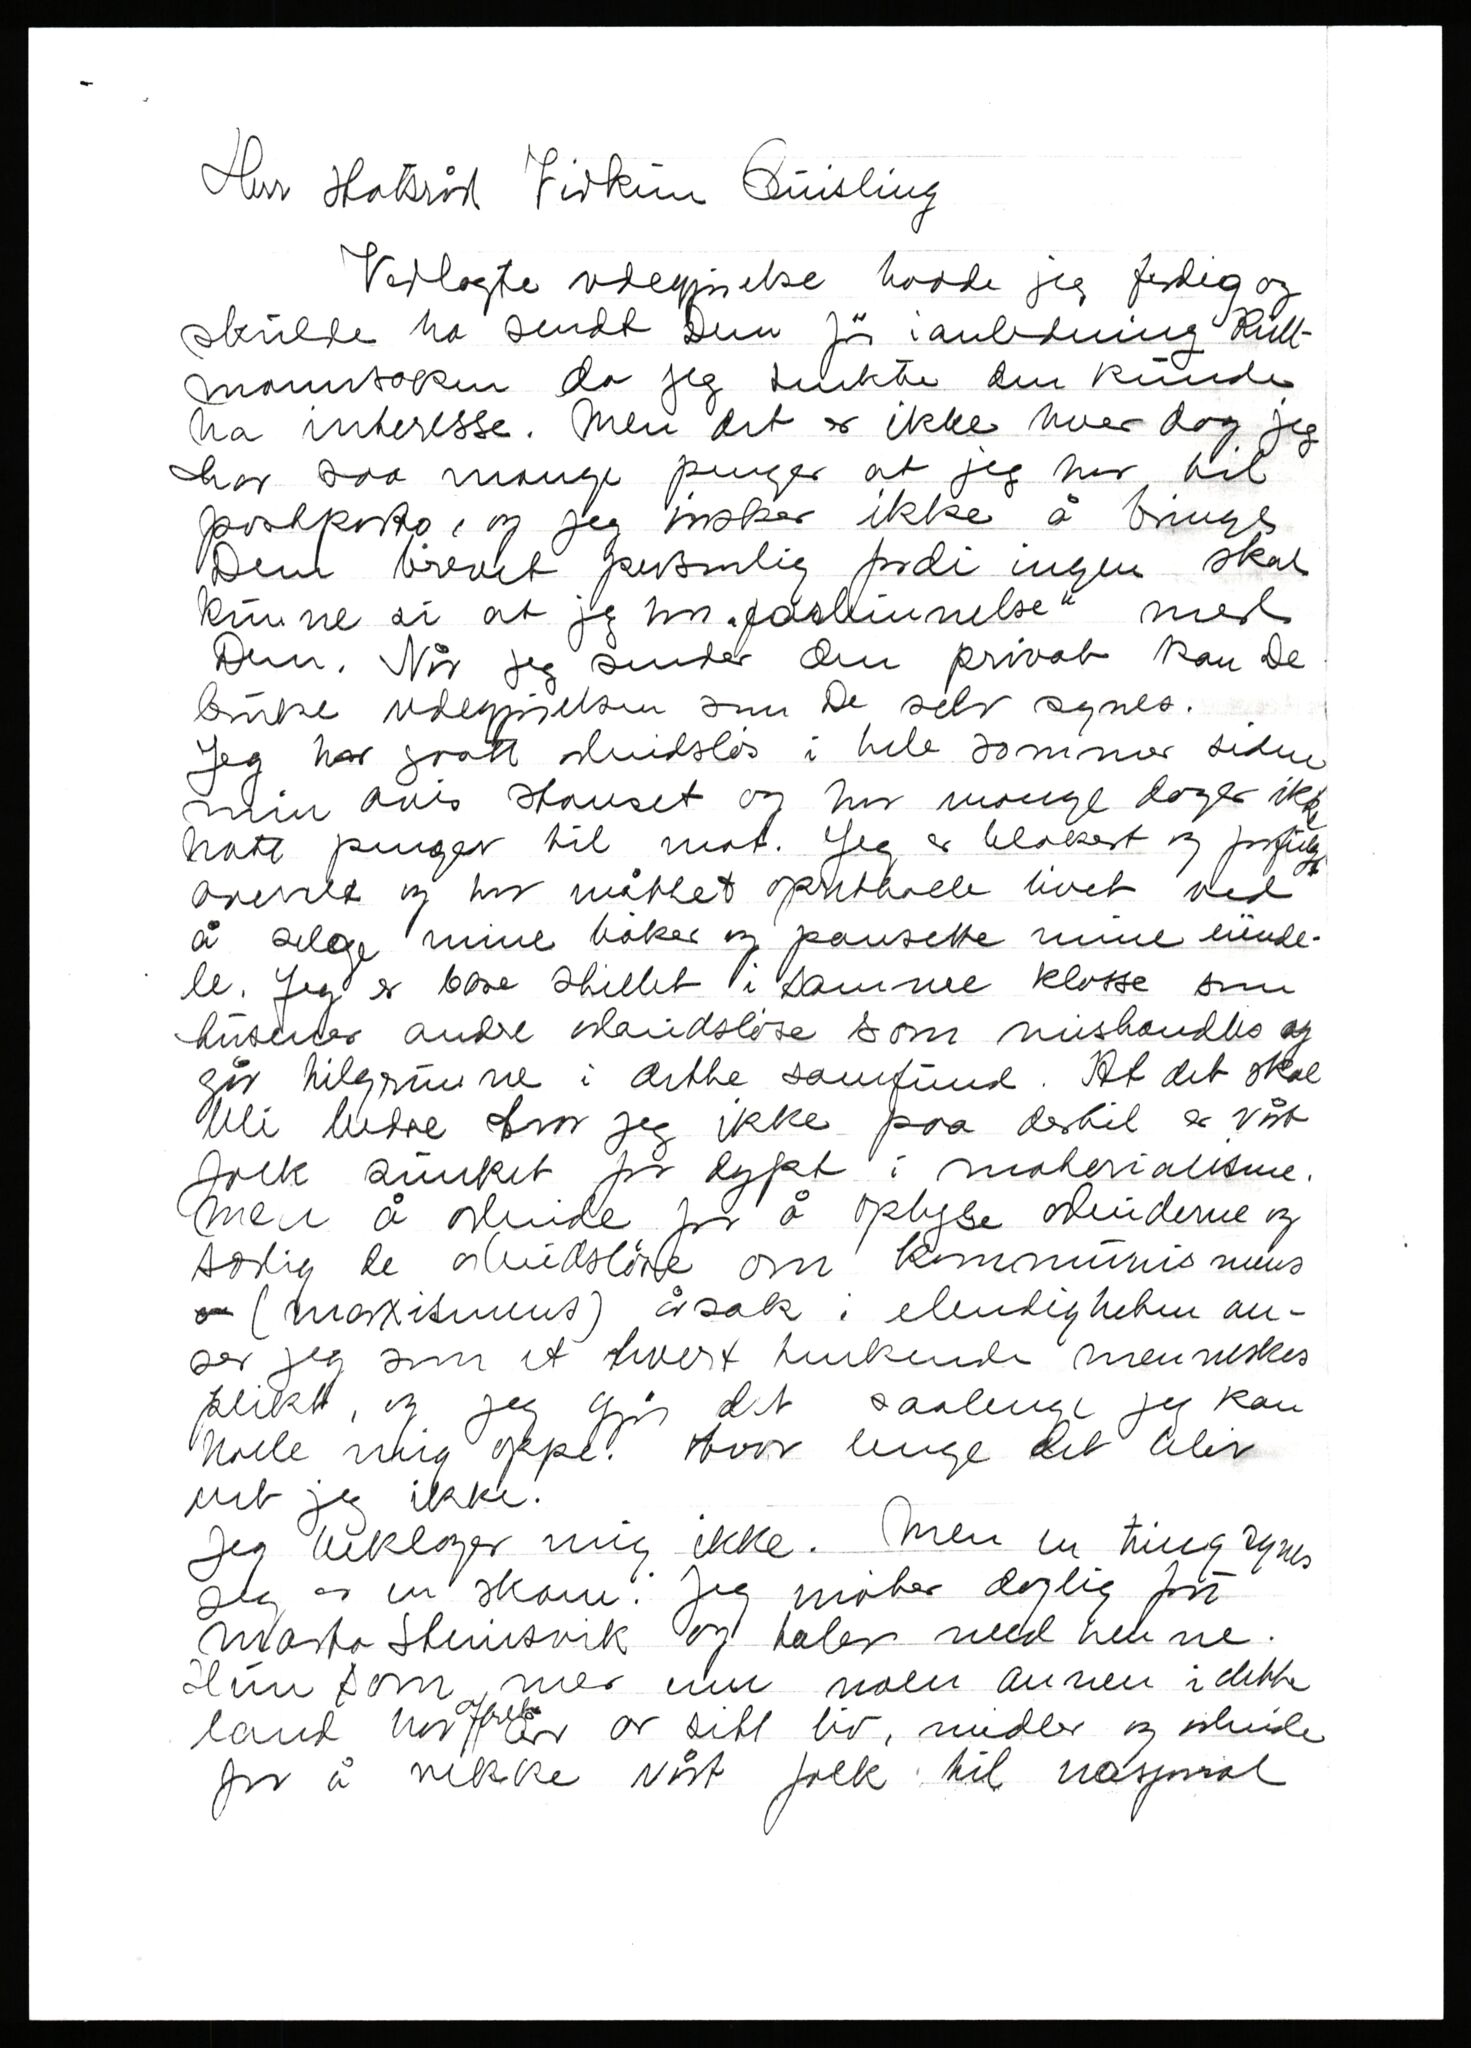 Herr Statsråd Vidkun Quisling
Vedlagte redegjørelse hadde jeg ferdig og
skulde ha sendt Dem før i anledning Kull-
mannsaken da jeg tenkte den kunde
ha interesse. Men det er ikke hver dag jeg
har saa mange penger at jeg har til
postporto, og jeg ønsker ikke å bringe
Dem brevet personlig fordi ingen skal
kunne si at jeg har „forbinnelse" med
Dem. Når jeg sender den privat kan De
bruke redegjørelsen som De selv synes.
Jeg har gaatt arbeidsløs i hele sommer siden
min avis stanset og har mange dager ikke
hatt penger til mat. Jeg er blokert og forfulgt
overalt og har måttet opretholde livet ved
å selge mine bøker og pansette mine eiende-
le. Jeg er bare stillet i samme klasse som
tusener andre arbeidsløse som mishandles og
går tilgrunne i dette samfund. At det skal
bli bedre tror jeg ikke paa dertil er vårt
folk sunket for dypt i materialisme.
Men å arbeide for å oplyse arbeiderne og
særlig de arbeidsløse om kommunismens
(marxismens) årsak i elendigheten an-
ser jeg som et hvert tenkende menneskes
plikt, og jeg gjør det saalenge jeg kan
holde mig oppe. Hvor lenge det blir
vet jeg ikke.
Jeg beklager mig ikke. Men en ting synes
jeg er en skam: Jeg møter daglig fru
Marta Steinsvik og taler med henne.
Hun som mer enn noen annen i dette
land har ofret år av sitt liv, midler og arbeide
for å vekke vårt folk til nasjonal